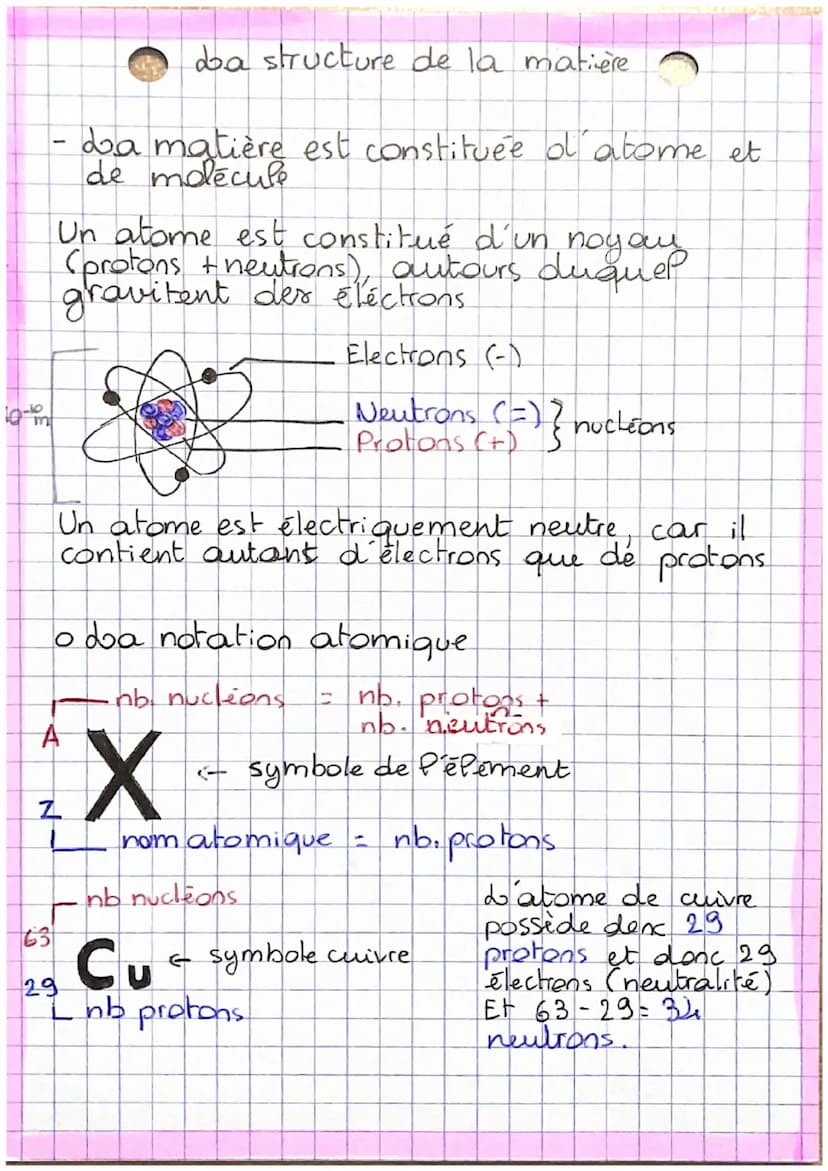 La structure de la matière
- La matière est constituée d'atome et
de molécule
Un atome est constitué d'un noyau
(protons + neutrons), autours duquel
gravitent des éléctrons
Electrons (-)
10⁻¹⁰ m
Neutrons (=) } nucléons
Protons (+)
Un atome est électriquement neutre, car il
contient autant d'électrons que de protons
o La notation atomique
nb. nucléons = nb. protons +
nb. neutrons
A
X ← symbole de l'élement
Z
nom atomique = nb. protons
nb nucléons
63
Cu ← symbole cuivre
29
nb protons
L'atome de cuivre
possède donc 29
protons et donc 29
électrons (neutralité)
Et 63 - 29 = 34
neutrons.